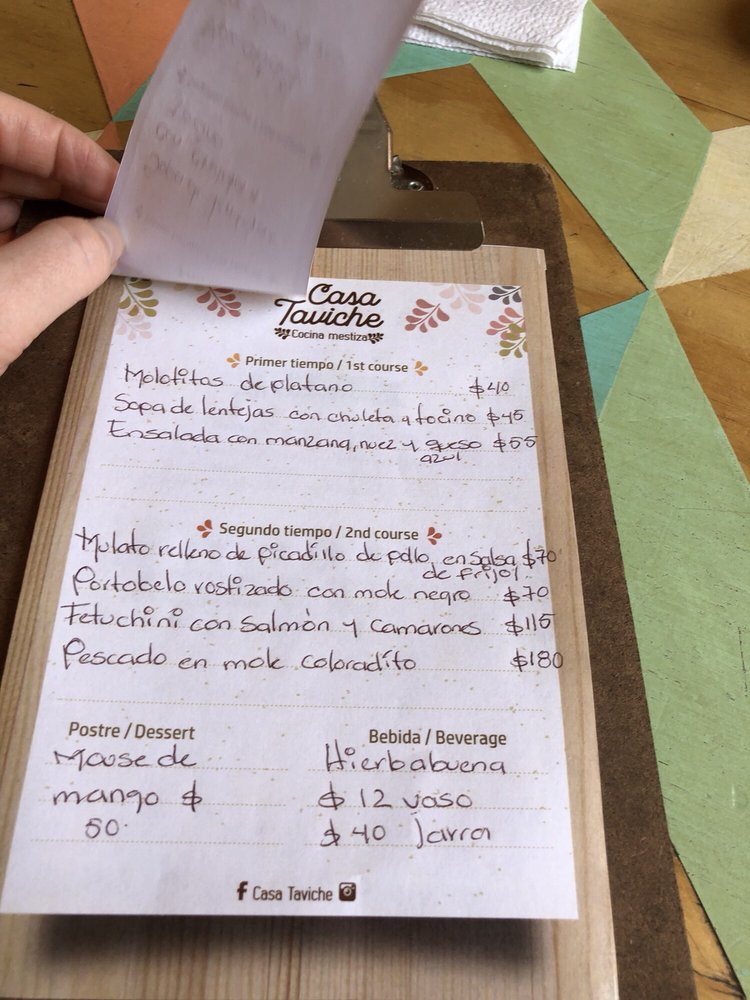 Casa
Taviche
Cocina mestiza
Primer tiempo / 1st course
Molotitos de platano $40
Sopa de lentejas con chuleta y tocino $45
Ensalada con manzana, nuez y queso $55
azul
Segundo tiempo / 2nd course
Mulato relleno de picadillo de pollo, en salsa $70
de frijol.
Portobelo rostizado con mole negro $70
Fetuchini con Salmòn y camarones $115
Pescado en mole coloradito $180
Postre / Dessert
Mouse de
mango $
50.
Bebida / Beverage
Hierbabuena
$ 12 vaso
$ 40 Jarra
Casa Taviche